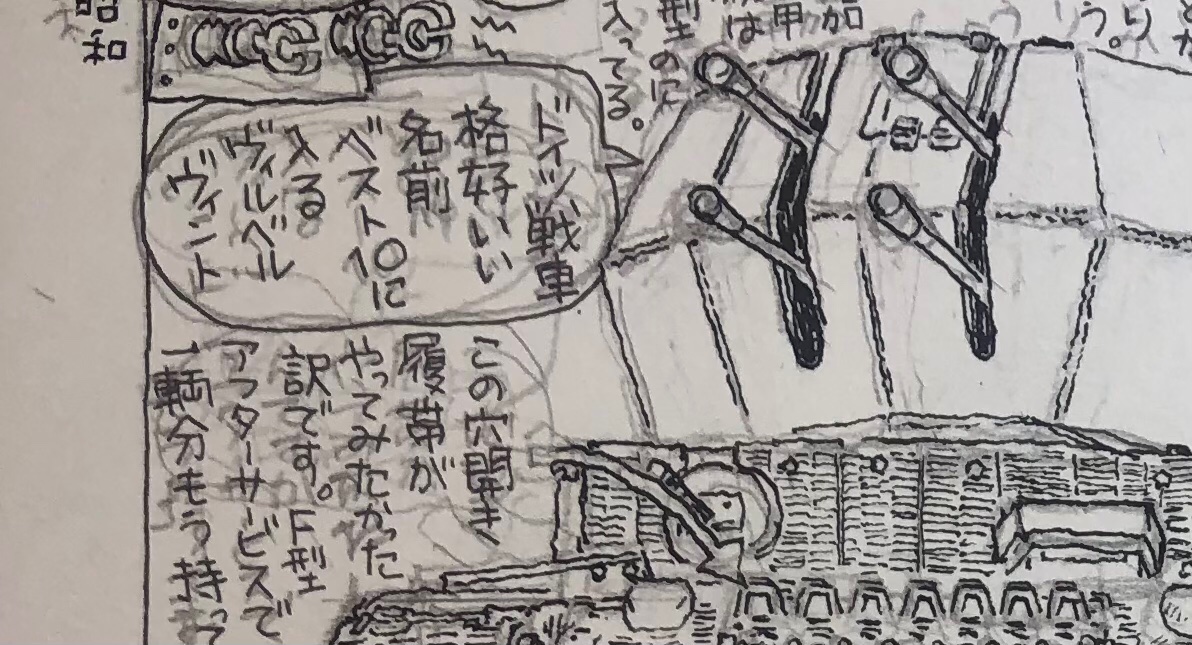 加
甲
は
型のに
入ってる。
昭
和
ドイツ戦車
格好いい
名前
ベスト10に
入る
ヴィルベル
ヴィント
この穴開き
履帯が
やってみたかった
訳です。F型
アフターサービスで
一輌分もう持って